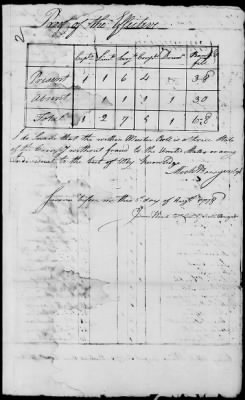 2
Proof of the Effectives
Capt Lieut Serjt Corpl Drum
Present 1 1 6 4 38
Absent 1 1 1 1 30
Total 1 2 7 5 1 68
I do Swear that the within Muster Roll is a true State
of the Company without fraud to the United States or any
Individual to the best of my Knowledge
Sworn before me this 5 day of Augt 1778